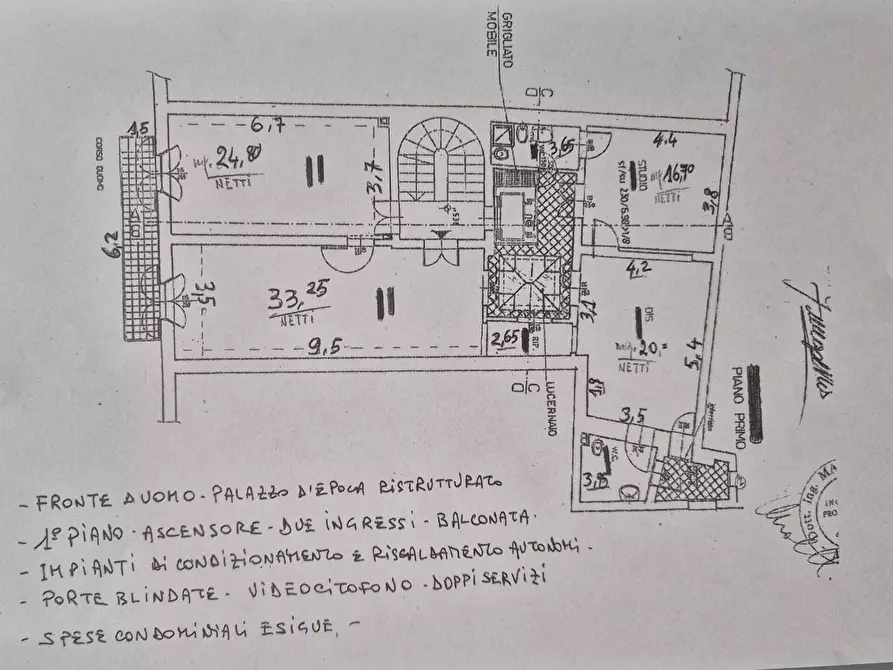 GRIGLIATO
MOBILE
D C
1,5
6,7
CORSO DUOMO
mq. 24,80
NETTI
3,7
3,65
STUDIO
4,4
mq 16,70
NETTI
3,8
B
6,2
3,5
33,25
NETTI
9,5
2,65
RIP.
3,1
4,2
DIS
mq. 20,=
NETTI
5,4
1,8
3,5
D C
LUCERNAIO
W.C.
3,85
PIANO PRIMO
Dott. Ing. MA
- FRONTE DUOMO - PALAZZO D'EPOCA RISTRUTTURATO
- 1° PIANO - ASCENSORE - DUE INGRESSI - BALCONATA.
- IMPIANTI DI CONDIZIONAMENTO E RISCALDAMENTO AUTONOMI.
- PORTE BLINDATE - VIDEOCITOFONO - DOPPI SERVIZI
- SPESE CONDOMINIALI ESIGUE. -